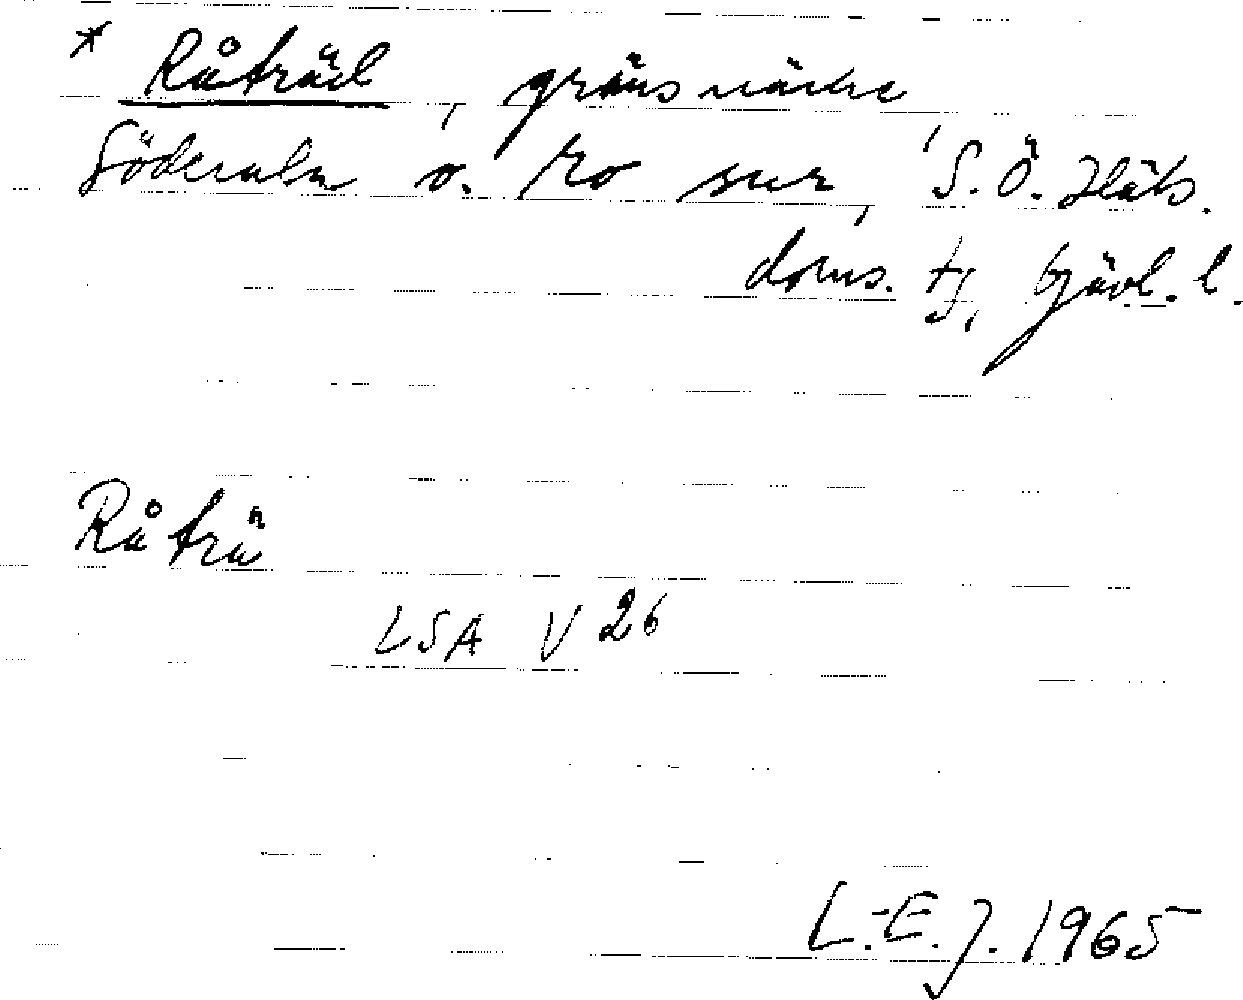 * Råträd, gränsmärke,
Söderala o. Ro snr, S. Ö. Häls.
doms. tg, Gävl. l.
Råträ
LSA V 26
L.-E. J. 1965